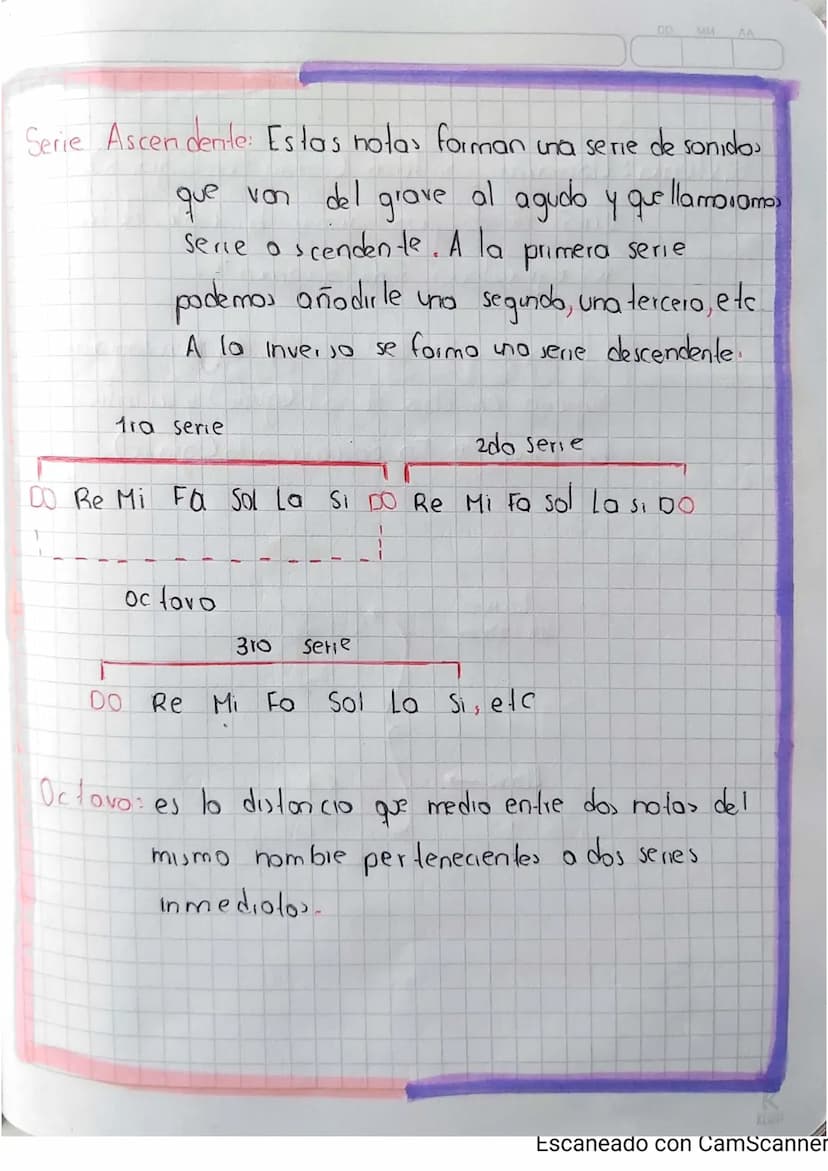 DD MM AA
Serie Ascendente: Estas notas forman una serie de sonidos
que van del grave al agudo y que llamaramos
serie ascendente. A la primera serie
podemos añadirle una segunda, una tercera, etc
A la inversa se forma una serie descendente.
1ra serie
2da serie
DO Re Mi Fa Sol La Si DO Re Mi Fa sol la si DO
octava
3ra serie
DO Re Mi Fa Sol La Si, etc
Octava: es la distancia que media entre dos notas del
mismo nombre pertenecientes a dos series
inmediatas.
Escaneado con CamScanner